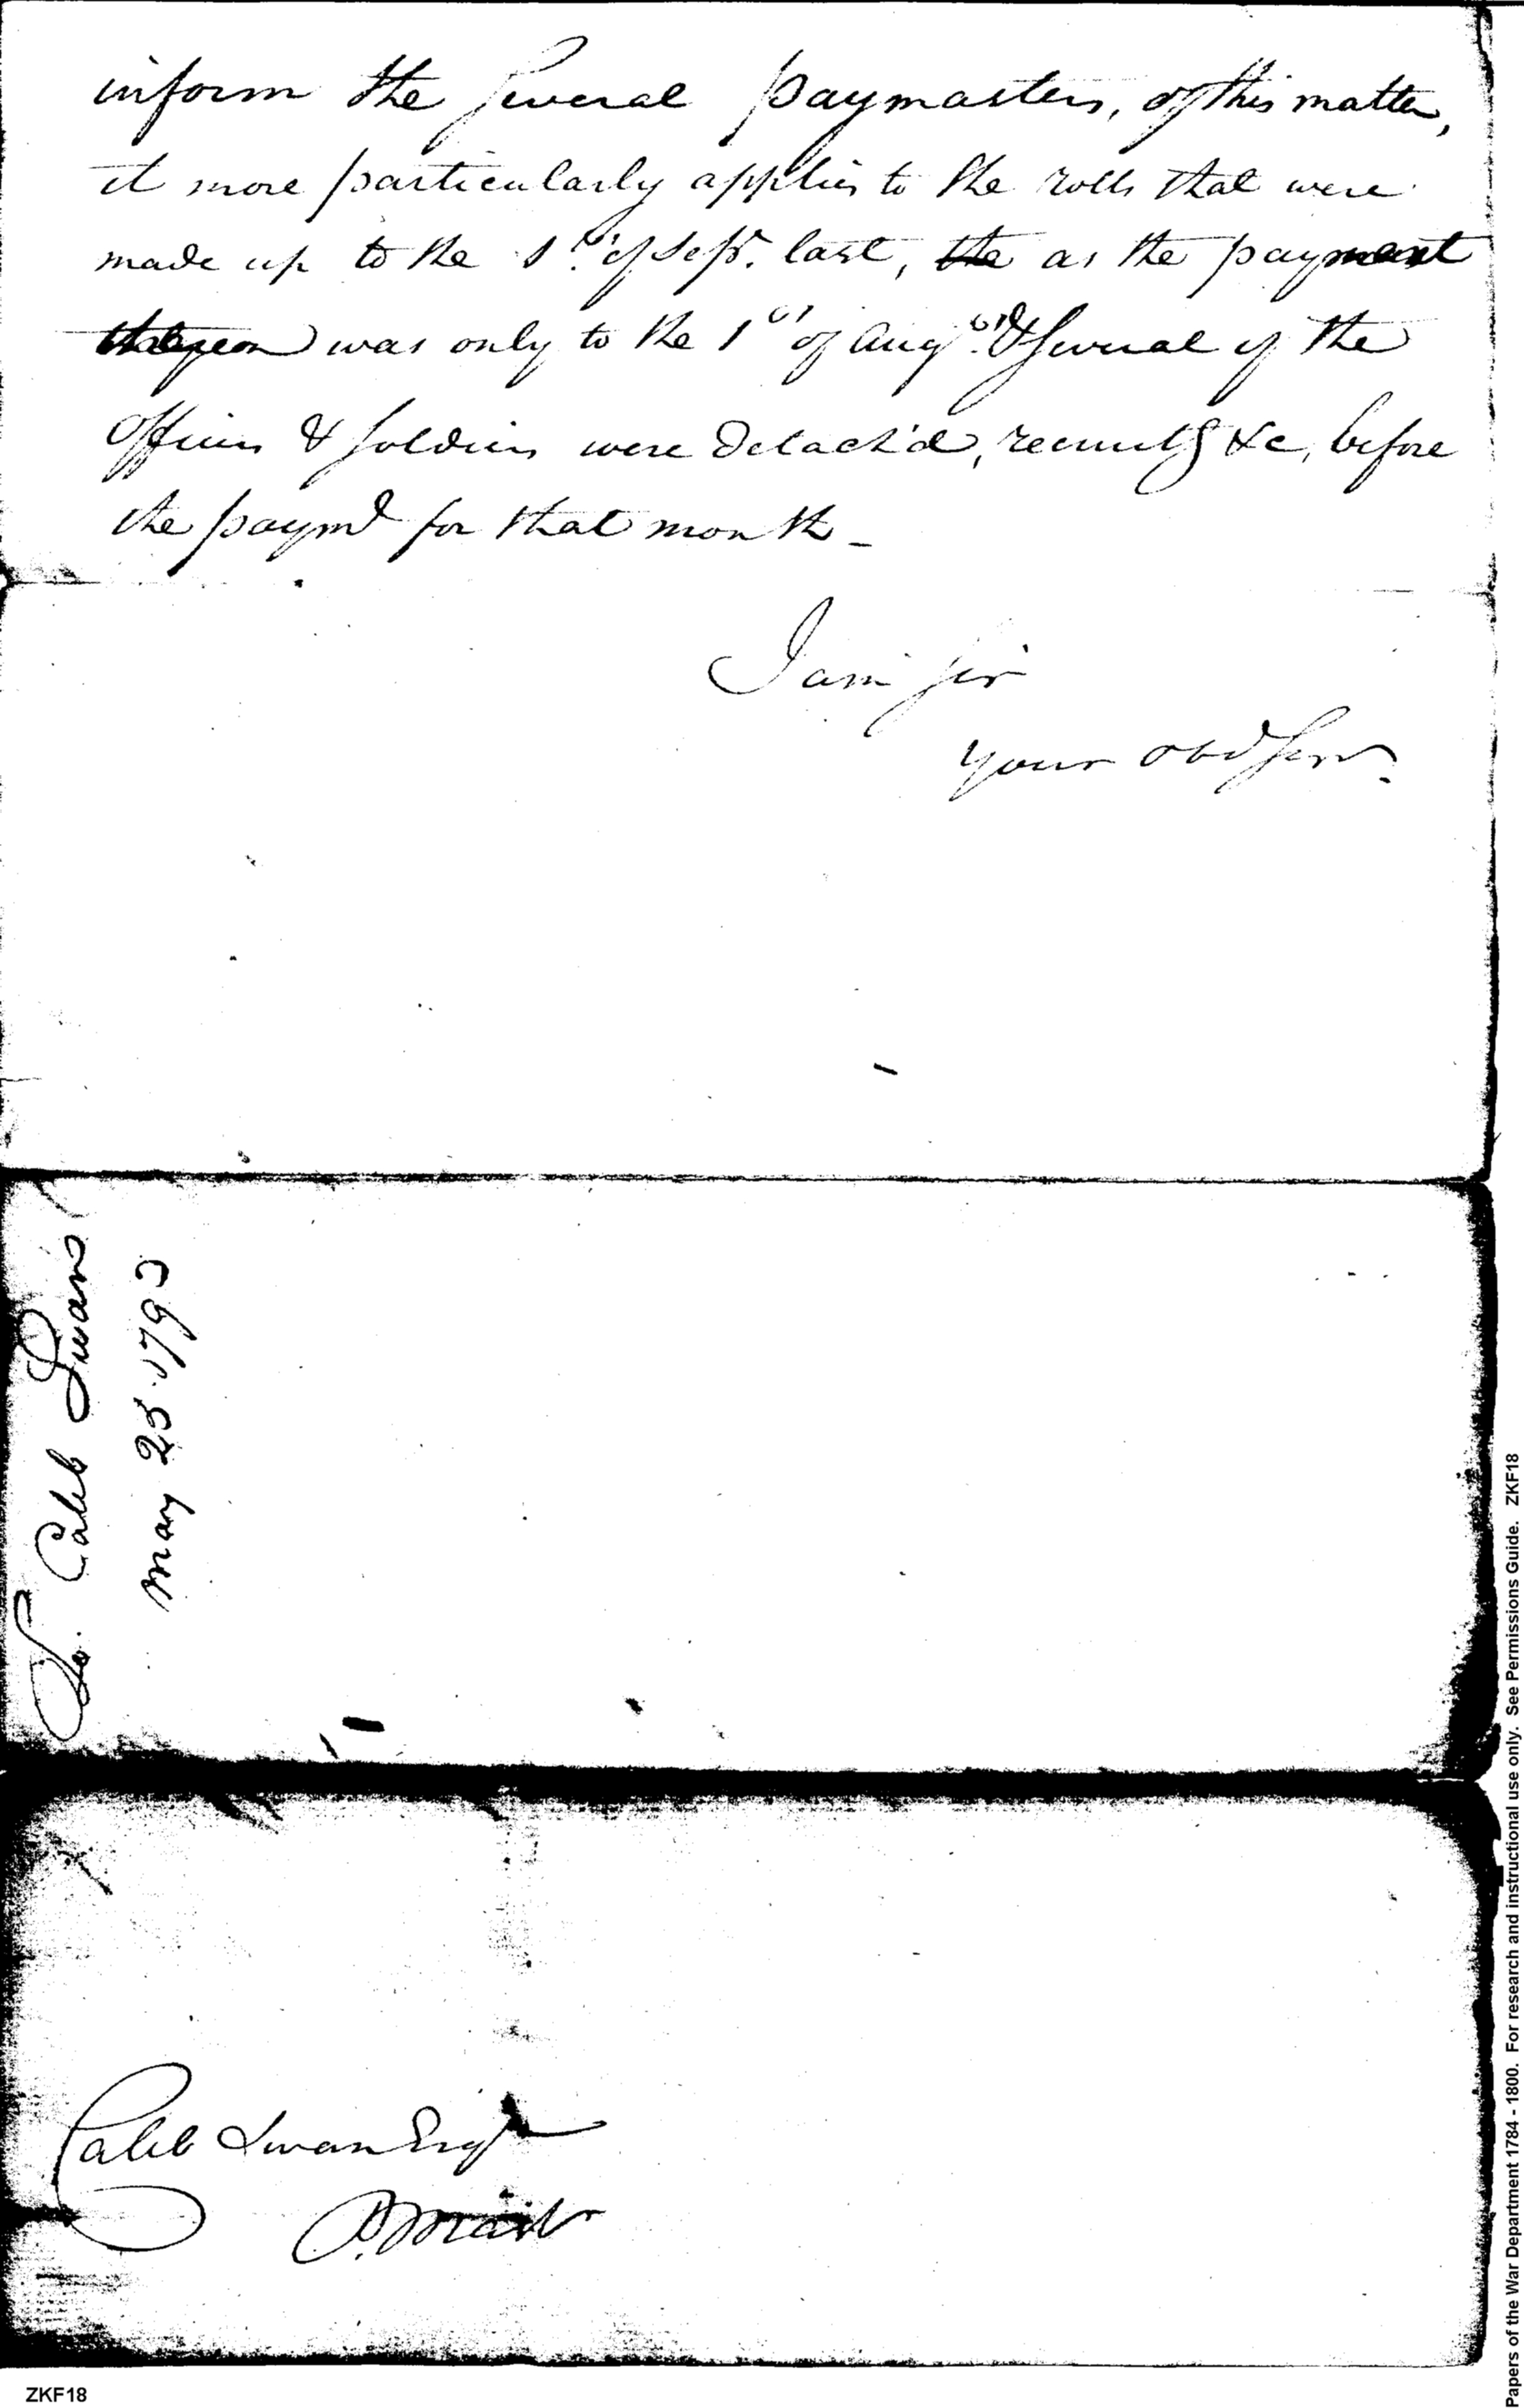 inform the several paymasters, of this matter,
it more particularly applies to the rolls that were
made up to the 1st of Sepr. last, the as the payment
thereon was only to the 1st of Augst. & several of the
officers & soldiers were detach'd, recruitg &c, before
the paymt for that month_
I am sir
your obd serv.
To. Caleb Swan
May 25. 1793
Caleb Swan Esqr
P. Mast
Papers of the War Department 1784 - 1800. For research and instructional use only. See Permissions Guide. ZKF18
ZKF18